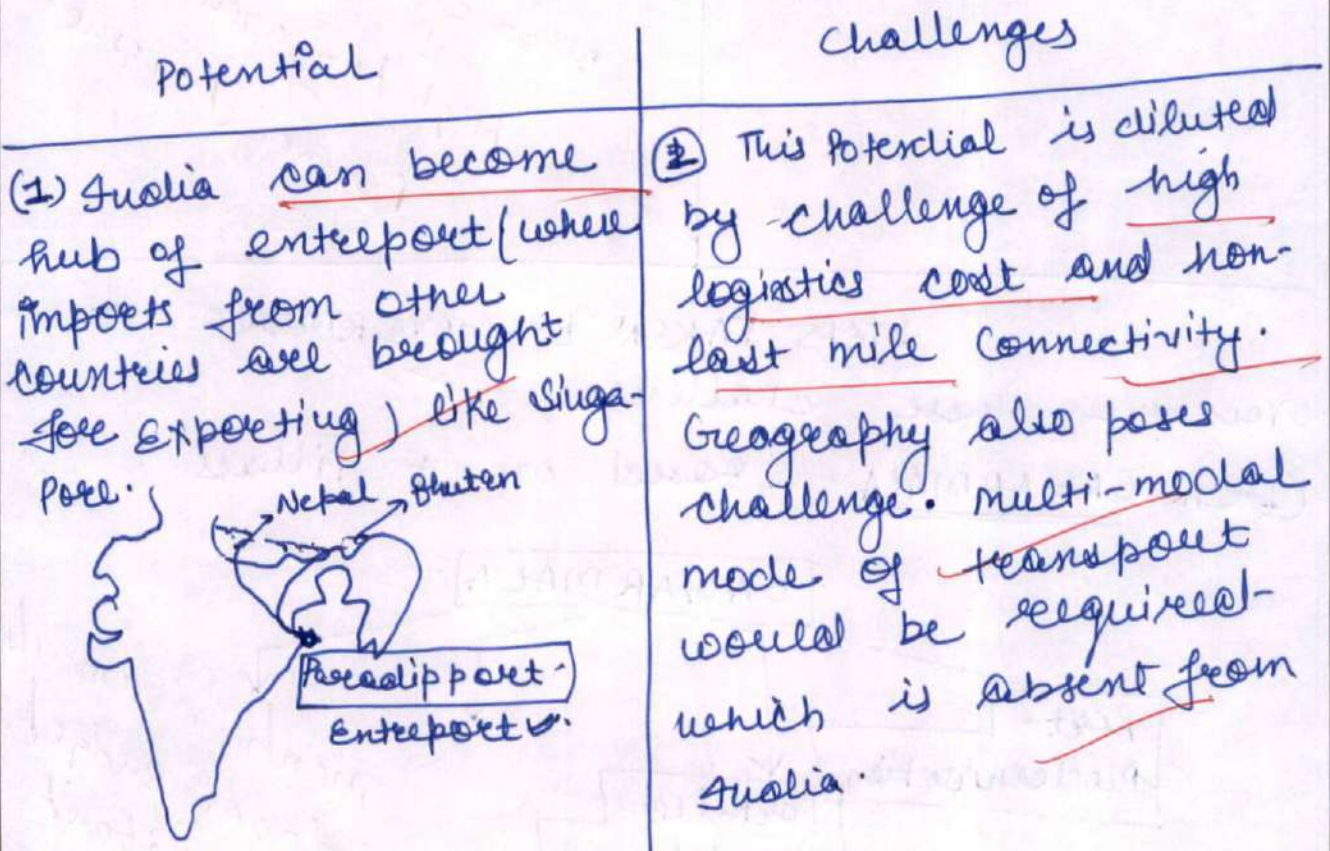 Potential
(1) India can become
hub of entreport (where
imports from other
countries are brought
for exporting) like Singa-
pore.
Nepal
Bhutan
Paradip port-
Entreport
Challenges
(1) This Potential is diluted
by challenge of high
logistics cost and non-
last mile connectivity.
Geography also poses
challenge. Multi-modal
mode of transport
would be required-
which is absent from
India.